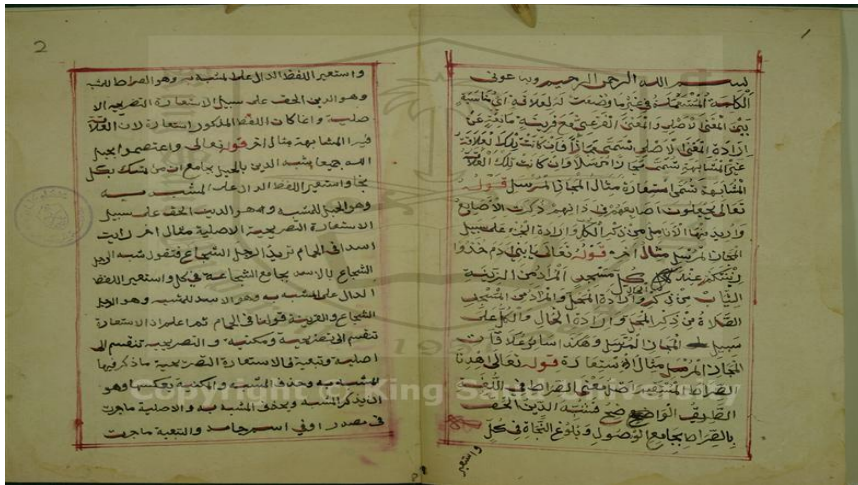 1
بسم الله الرحمن الرحيم وبه عوني
الكلمة المستعملة في غير ما وضعت له لعلاقة اي مناسبة
بين المعنى الاصلي والمعنى الفرعي مع قرينة مانعة عن
ارادة المعنى الاصلي تسمى مجازا فان كانت تلك العلاقة
غير المشابهة تسمى مجازا مرسلا وان كانت تلك العلاقة
المشابهة تسمى استعارة مثال المجاز المرسل قوله
تعالى يجعلون اصابعهم في ذانهم ذكرت الاصابع
واريد منها الانامل من ذكر الكل وارادة الجزء على سبيل
المجاز المرسل مثال اخر قوله تعالى يابني ادم خذوا
زينتكم عند كل مسجد المراد من الزينة
الثياب من ذكر وارادة المحل والمراد من المسجد
الصلاة من ذكر المحل وارادة الحال والكل على
سبيل المجاز المرسل وهكذا سائر علاقات
المجاز المرسل مثال الاستعارة قوله تعالى اهدنا
الصراط المستقيم اصل معنى الصراط في اللغة
الطريق الواضح صح فشبه الدين الحق
بالصراط بجامع الوصول وبلوغ النجاة في كل
واستعير
2
واستعير اللفظ الدال على المشبه به وهو الصراط للمشبه
وهو الدين الحق على سبيل الاستعارة التصريحية الا
صلية وانما كان اللفظ المذكور استعارة لان العلاقة
فيه المشابهة مثال اخر قوله تعالى واعتصموا بحبل
الله جميعا شبه الدين بالحبل بجامع ان من تمسك بكل
نجا واستعير اللفظ الدال على المشبه به
وهو الحبل للمشبه وهو الدين الحق على سبيل
الاستعارة التصريحية الاصلية مثال اخر رايت
اسدا في الحمام تريد الرجل الشجاع فتقول شبه الرجل
الشجاع بالاسد بجامع الشجاعة في كل واستعير اللفظ
الدال على المشبه به وهو الاسد للمشبه وهو الرجل
الشجاع والقرينة قولنا في الحمام ثم اعلم ان الاستعارة
تنقسم الى تصريحية ومكنية والتصريحية تنقسم الى
اصلية وتبعية فالاستعارة التصريحية ما ذكر فيها
المشبه به وحذف المشبه والمكنية بعكسها وهو
ان يذكر المشبه ويحذف المشبه به والاصلية ما جرت
في مصدر او في اسم جامد والتبعية ما جرت
Copyright © King Saud University